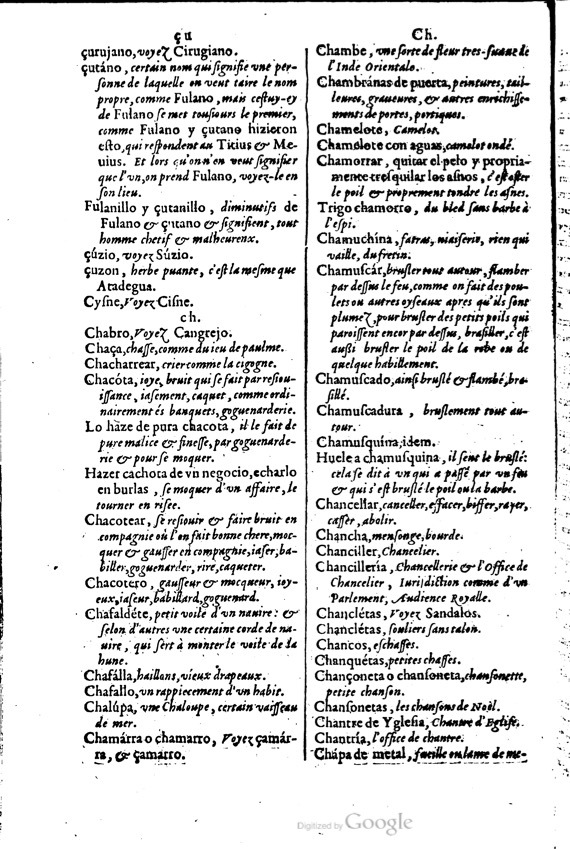 çu
çurujano, voyeʒ Cirugiano.
çutáno, certain nom qui ſignifie vne per-
ſonne de laquelle on veut taire le nom
propre, comme Fulano, mais ceſtuy-cy
de Fulano ſe met touſiours le premier,
comme Fulano y çutano hizieron
eſto, qui reſpondent au Titius & Me-
uius. Et lors qu'on n'en veut ſignifier
que l'vn, on prend Fulano, voyez-le en
ſon lieu.
Fulanillo y çutanillo, diminutifs de
Fulano & çutano & ſignifient, tout
homme chetif & malheureux.
çúzio, voyeʒ Súzio.
çuzon, herbe puante, c'eſt la meſme que
Atadegua.
Cyſne, Voyeʒ Ciſne.
ch.
Chabro, Voyeʒ Cangrejo.
Chaça, chaſſe, comme du ieu de paulme.
Chacharrear, crier comme la cigogne.
Chacóta, ioye, bruit qui ſe fait par reſiou-
iſſance, iaſement, caquet, comme ordi-
nairement és banquets, goguenarderie.
Lo hàze de pura chacota, il le fait de
pure malice & fineſſe, par goguenarde-
rie & pour ſe moquer.
Hazer cachota de vn negocio, echarlo
en burlas, ſe moquer d'vn affaire, le
tourner en riſee.
Chacotear, ſe reſiouir & faire bruit en
compagnie où l'on fait bonne chere, moc-
quer & gauſſer en compagnie, iaſer, ba-
biller, goguenarder, rire, caqueter.
Chacotero, gauſſeur & mocqueur, ioy-
eux, iaſeur, babillard, goguenard.
Chafaldéte, petit voile d'vn nauire: &
ſelon d'autres vne certaine corde de na-
uire, qui ſert à monter le voile de la
hune.
Chafálla, haillons, vieux drapeaux.
Chafallo, vn rappiecement d'vn habit.
Chalúpa, vne Chaloupe, certain vaiſſeau
de mer.
Chamárra o chamarro, Voyeʒ çamár-
ra, & çamarro.
Ch.
Chambe, vne ſorte de fleur tres-ſuaue de
l'Inde Orientale.
Chambránas de puerta, peintures, tail-
leures, graueures, & autres enrichiſſe-
ments de portes, portiques.
Chamelote, Camelot.
Chamelote con aguas, camelot ondé.
Chamorrar, quitar el pelo y propria-
mente treſquilar los aſnos, c'eſt oſter
le poil & proprement tondre les aſnes.
Trigo chamorro, du bled ſans barbe à
l'eſpi.
Chamuchina, fatras, niaiſerie, rien qui
vaille, du fretin.
Chamuſcár, bruſler tout autour, flamber
par deſſus le feu, comme on fait des pou-
lets ou autres oyſeaux apres qu'ils ſont
plumeʒ, pour bruſler des petits poils qui
paroiſſent encor par deſſus, braſiller, c'eſt
auſſi bruſler le poil de la robe ou de
quelque habillement.
Chamuſcado, ainſi bruſlé & flambé, bra-
ſillé.
Chamuſcadura, bruſlement tout au-
tour.
Chamuſquína, idem.
Huele a chamuſquina, il ſent le bruſlé:
cela ſe dit à vn qui a paſſé par vn feu
& qui s'eſt bruſlé le poil ou la barbe.
Chancellar, canceller, effacer, biffer, rayer,
caſſer, abolir.
Chancha, menſonge, bourde.
Chanciller, Chancelier.
Chancilleria, Chancellerie & l'Office de
Chancelier, Iuriſdiction comme d'vn
Parlement, Audience Royalle.
Chanclétas, Voyeʒ Sandalos.
Chanclétas, ſouliers ſans talon.
Chancos, eſchaſſes.
Chanquétas, petites chaſſes.
Chançoneta o chanſoneta, chanſonette,
petite chanſon.
Chanſonetas, les chanſons de Noël.
Chantre de Ygleſia, Chantre d'Egliſe.
Chantría, l'office de chantre.
Chápa de metal, fueille ou lame de me-
Digitized by Google